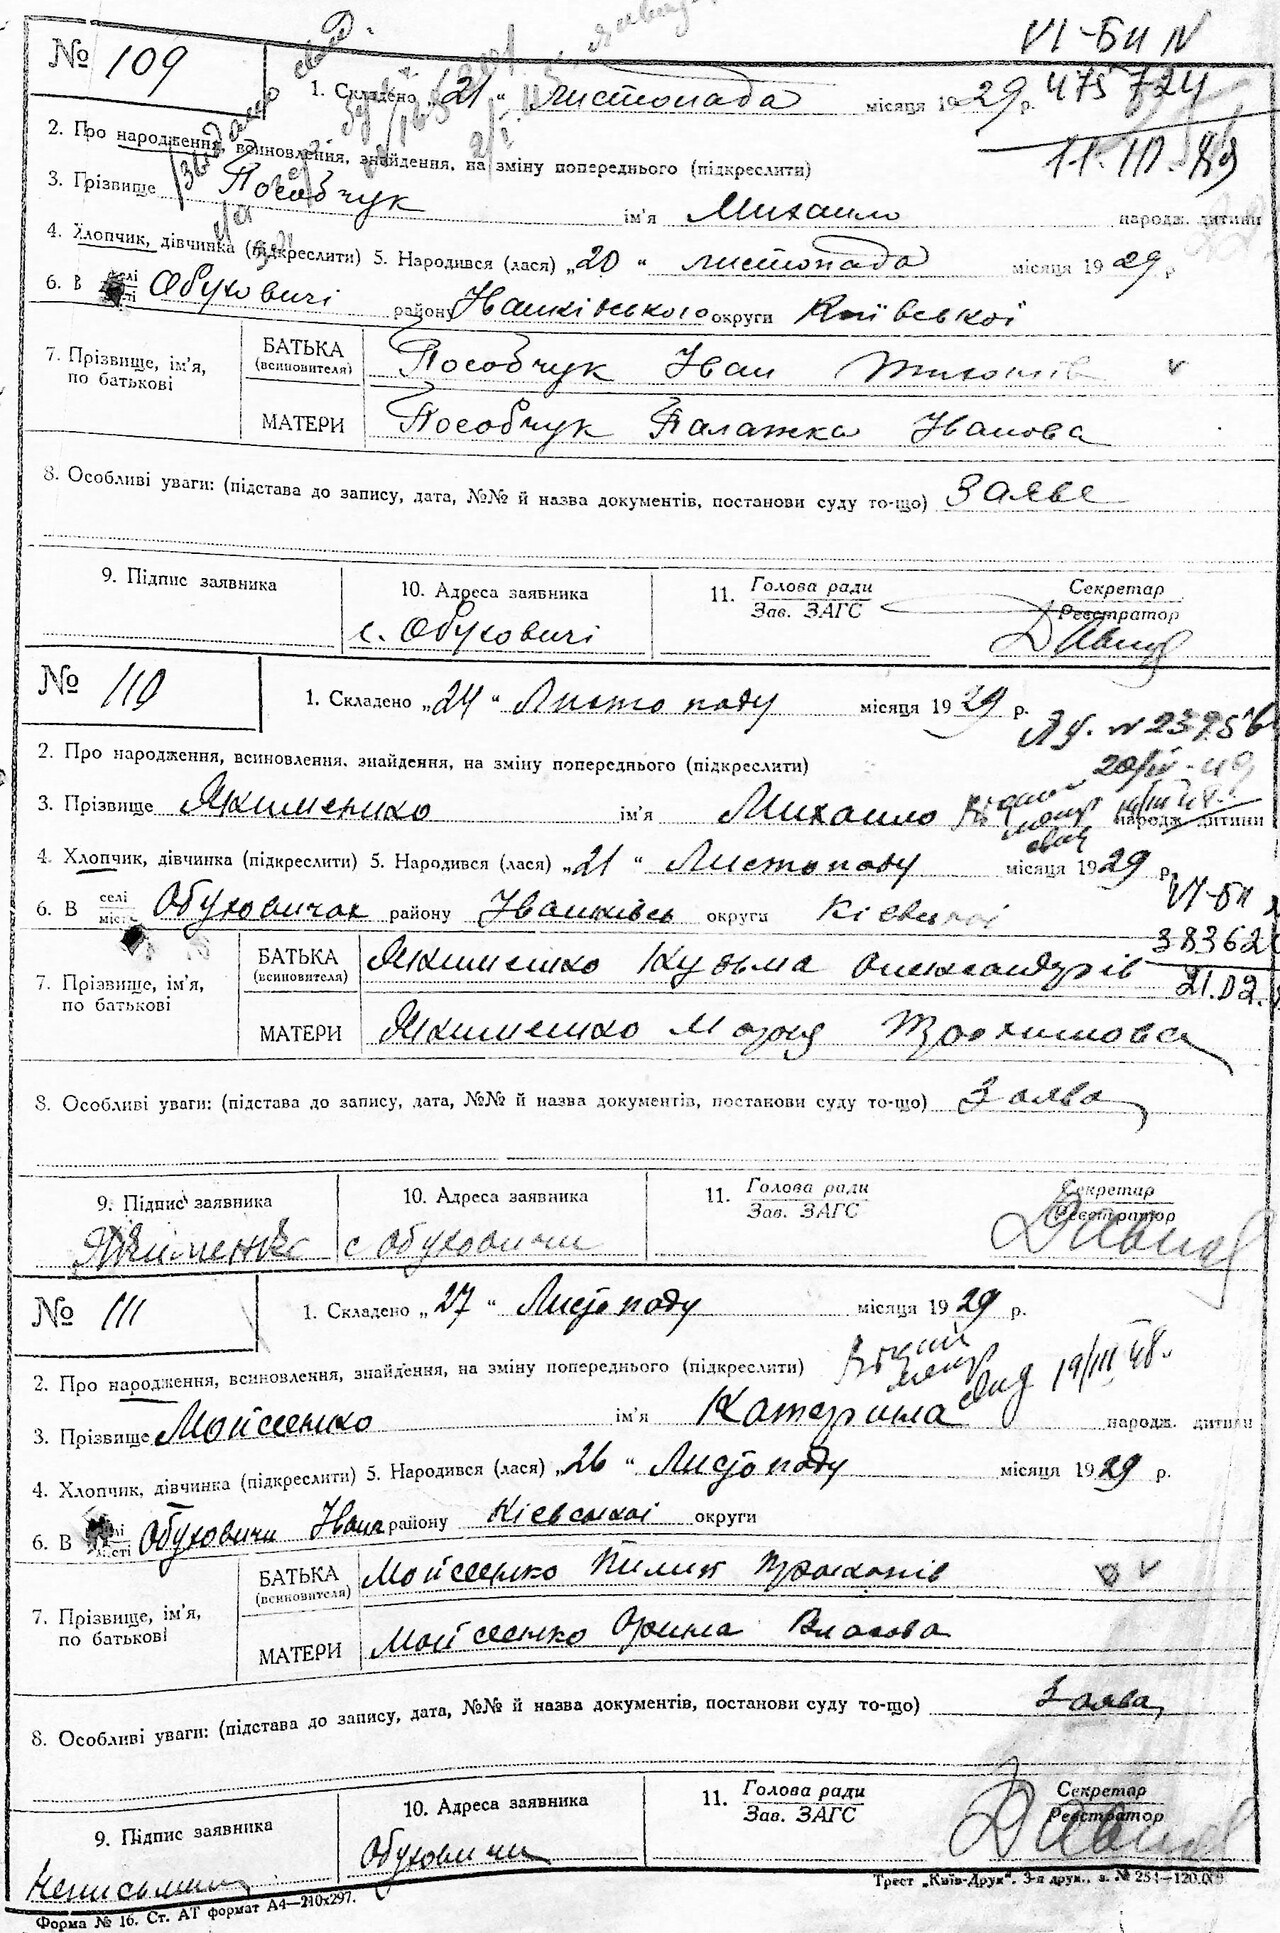 VI-БК N
№ 109
1. Складено „21“ листопада місяця 1929 р. 475724
2. Про народження, всиновлення, знайдення, на зміну попереднього (підкреслити)
11.III.83
3. Прізвище Пособчук ім'я Михаило народж. дитини
4. Хлопчик, дівчинка (підкреслити) 5. Народився (лася) „20“ листопада місяця 1929 р
6. В селі Обуховичі району Іванківського округи Київської
7. Прізвище, ім'я, по батькові
БАТЬКА (всиновителя) Пособчук Іван
МАТЕРИ Пособчук Палажка Іванова
8. Особливі уваги: (підстава до запису, дата, №№ й назва документів, постанови суду то-що) Заяве
9. Підпис заявника
10. Адреса заявника
с. Обуховичі
11. Голова ради
Зав. ЗАГС
Секретар
Реєстратор
№ 110
1. Складено „24“ Листопаду місяця 1929 р.
2. Про народження, всиновлення, знайдення, на зміну попереднього (підкреслити)
3. Прізвище Якименко ім'я Михаило народж. дитини
4. Хлопчик, дівчинка (підкреслити) 5. Народився (лася) „21“ Листопаду місяця 1929 р.
6. В селі місті Обуховичах району Іванківсь округи Кіевської
VI-БК
38362
21.02.
7. Прізвище, ім'я, по батькові
БАТЬКА (всиновителя) Якименко Кузьма Олександрів
МАТЕРИ Якименко Мария Трохимова
8. Особливі уваги: (підстава до запису, дата, №№ й назва документів, постанови суду то-що) Заява
9. Підпис заявника
Якименко
10. Адреса заявника
с Обуховичи
11. Голова ради
Зав. ЗАГС
Секретар
Реєстратор
№ 111
1. Складено „27“ Листопаду місяця 1929 р.
2. Про народження, всиновлення, знайдення, на зміну попереднього (підкреслити)
19/III 48.
3. Прізвище Мойсеенко ім'я Катерина народж. дитини
4. Хлопчик, дівчинка (підкреслити) 5. Народився (лася) „26“ Листопаду місяця 1929 р.
6. В селі місті Обуховичи Іван району Кіевської округи
7. Прізвище, ім'я, по батькові
БАТЬКА (всиновителя) Мойсеенко Пилип
МАТЕРИ Мойсеенко Орина Власова
8. Особливі уваги: (підстава до запису, дата, №№ й назва документів, постанови суду то-що) Заява
9. Підпис заявника
10. Адреса заявника
Обуховичи
11. Голова ради
Зав. ЗАГС
Секретар
Реєстратор
Форма № 16. Ст. АТ формат А4—210х297.
Трест „Київ-Друк“. 3-я друк., з. № 254—120.000